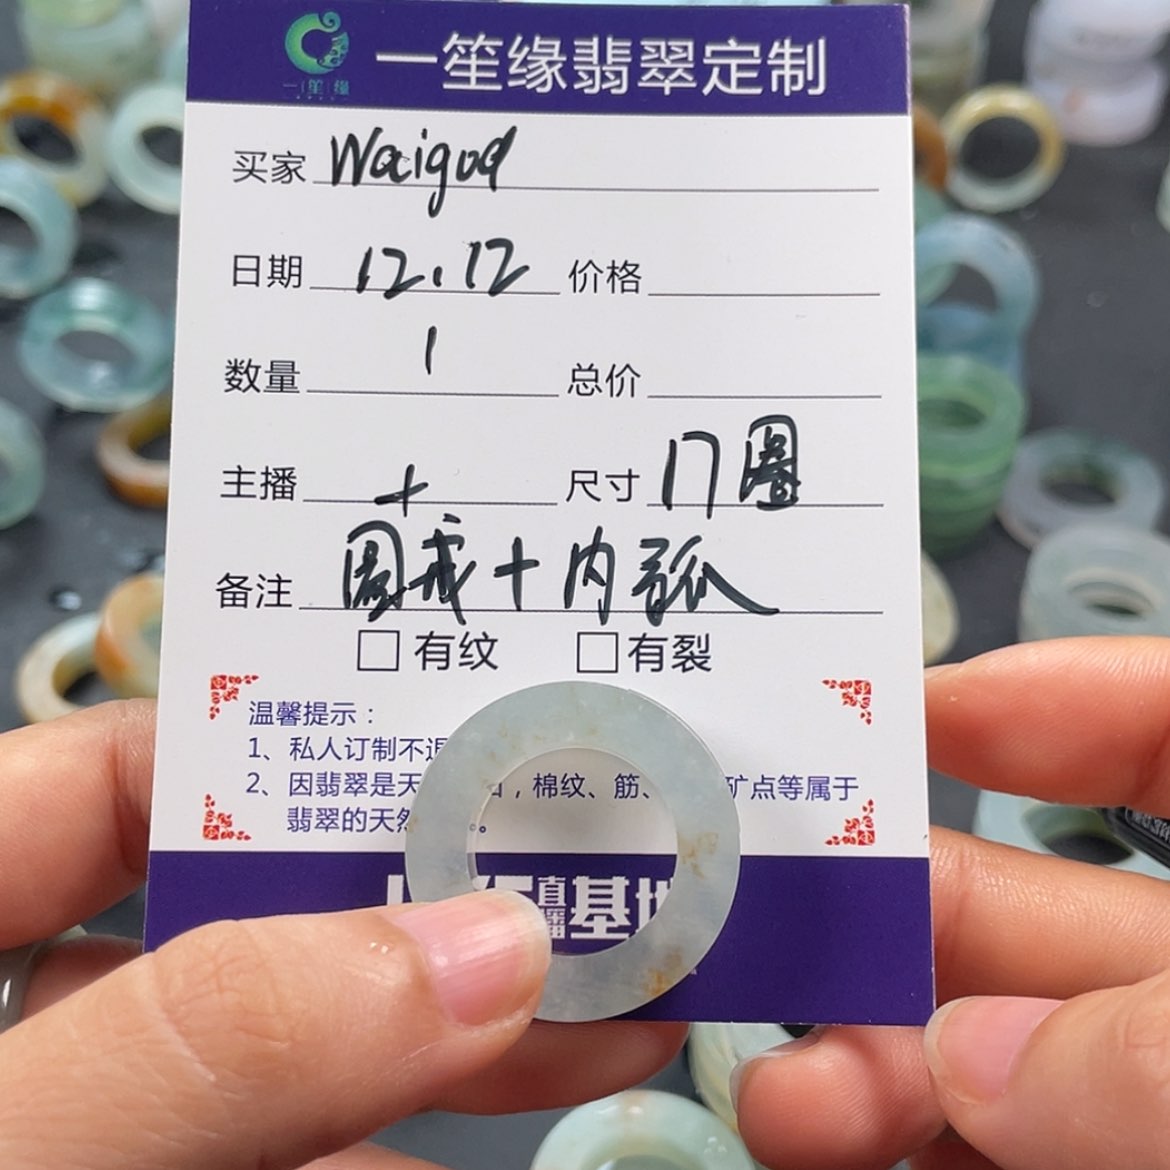 一笙缘
一笙缘翡翠定制
买家 Waigod
日期 12.12 价格
数量 1 总价
主播 十 尺寸 17圈
备注 圆戒+内弧
有纹 有裂
温馨提示：
1、私人订制不退
2、因翡翠是天 ，棉纹、筋、 矿点等属于
翡翠的天然 。
直播基地